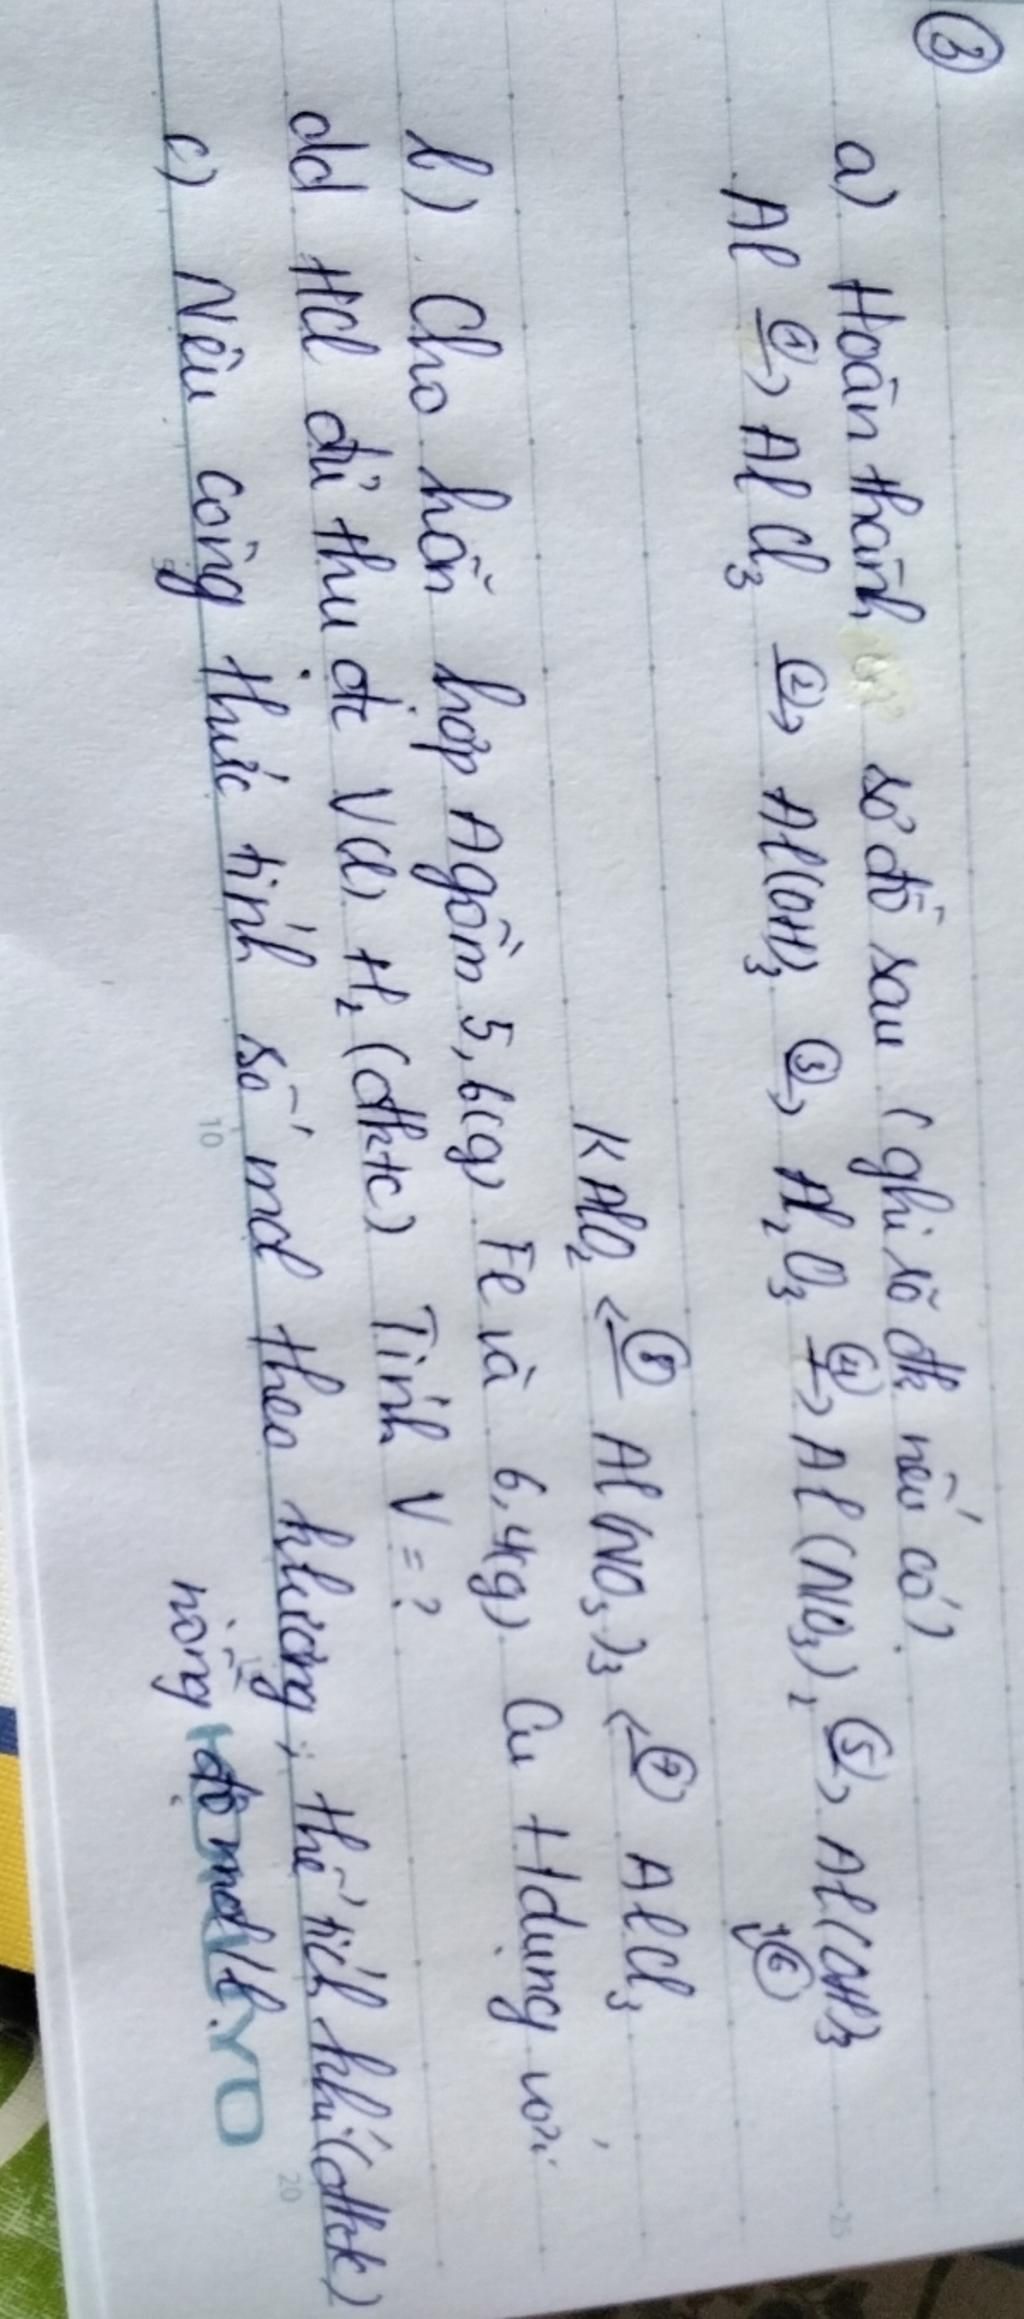 3
a) Hoàn thành sơ đồ sau (ghi rõ đk nếu có).
Al ①→ AlCl₃ ②→ Al(OH)₃ ③→ Al₂O₃ ④→ Al(NO₃)₂ ⑤→ Al(OH)₃
↓⑥
KAlO₂ ←⑧ Al(NO₃)₃ ←⑦ AlCl₃
b) Cho hỗn hợp A gồm 5,6(g) Fe và 6,4(g) Cu t/dụng với
dd HCl đủ thu đc V(l) H₂ (đktc) Tính V = ?
c) Nêu công thức tính số mol theo k/lượng, thể tích khí (đktc)
nồng độ mol/l.
10
20
25